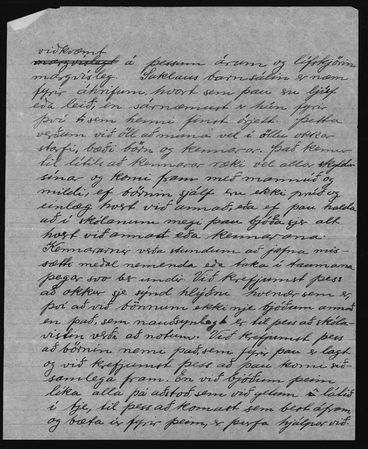 viðkvæmt
margvíslegt á þessum árum og lífskjörin
margvísleg. Saklaus barnssálin er næm
fyrir áhrifum, hvort sem þau eru ljúf
eða leið, en sárnæmust er hún fyrir
því sem henni finst órjett. Þetta
verðum við öll að muna vel í öllu okkar
starfi, bæði börn og kennarar. Það kemur
til lítils að kennarar ræki vel allar skyldur
sínar og komi fram með mannúð og
mildi, ef börnin sjálf eru ekki prúð og
einlæg hvert við annað, eða ef þau halda
að í skólanum megi þau bjóða sjer alt
hvert við annað eða kennarana.
Kennararnir verða stundum að jafna mis-
sætti meðal nemenda eða taka í taumana
þegar svo ber undir. Við krefjumst þess
að okkur sje sýnd hlýðni hvenær sem er,
því að við bönnum ekki nje bjóðum annað
en það, sem nauðsynlegt er til þess að skóla-
vistin verði að notum. Við krefjumst þess
að börnin nemi það sem fyrir þau er lagt
og við krefjumst þess að þau komi sið-
samlega fram. En við bjóðum þeim
líka alla þá aðstoð sem við getum í látið
í tje, til þess að komast sem best áfram,
og bæta úr fyrir þeim, er þurfa hjálpar við.